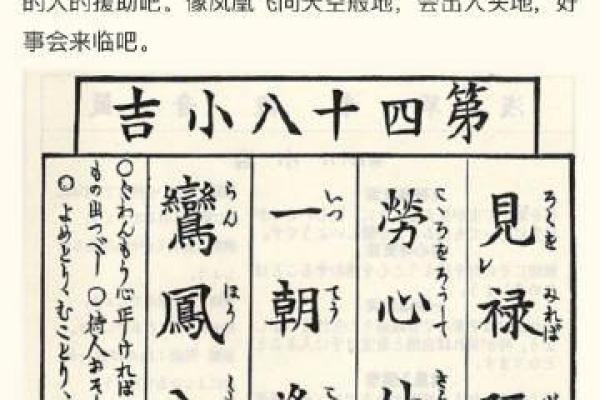 的人的援助吧。像凤凰飞向天空般地，会出人头地，好
事会来临吧。
第四十八小吉
見禄
ろくを みれば
勞心
こころをろうして
一朝
いつ てう
鸞鳳
らん ほう
〇ぐわんもう心正ければ
もの出つべし 〇待人おそ
〇よめとり、むことり、